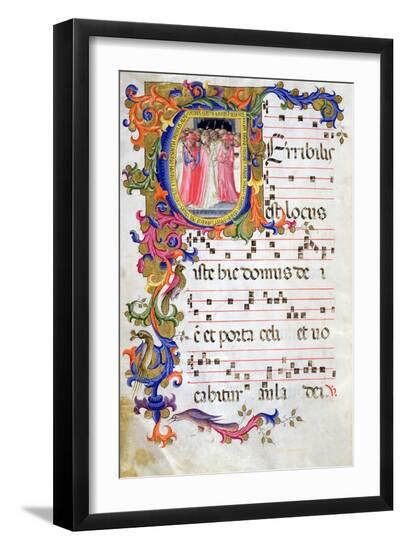 TErribilis
est locus
iste hic domus de i
ē et porta celi et uo
cabitur aula dei